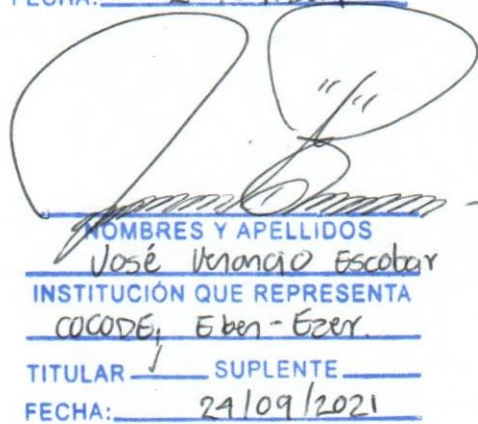 FECHA:
NOMBRES Y APELLIDOS
José Venancio Escobar
INSTITUCIÓN QUE REPRESENTA
COCODE, Eben-Ezer.
TITULAR ✓ SUPLENTE
FECHA: 24/09/2021